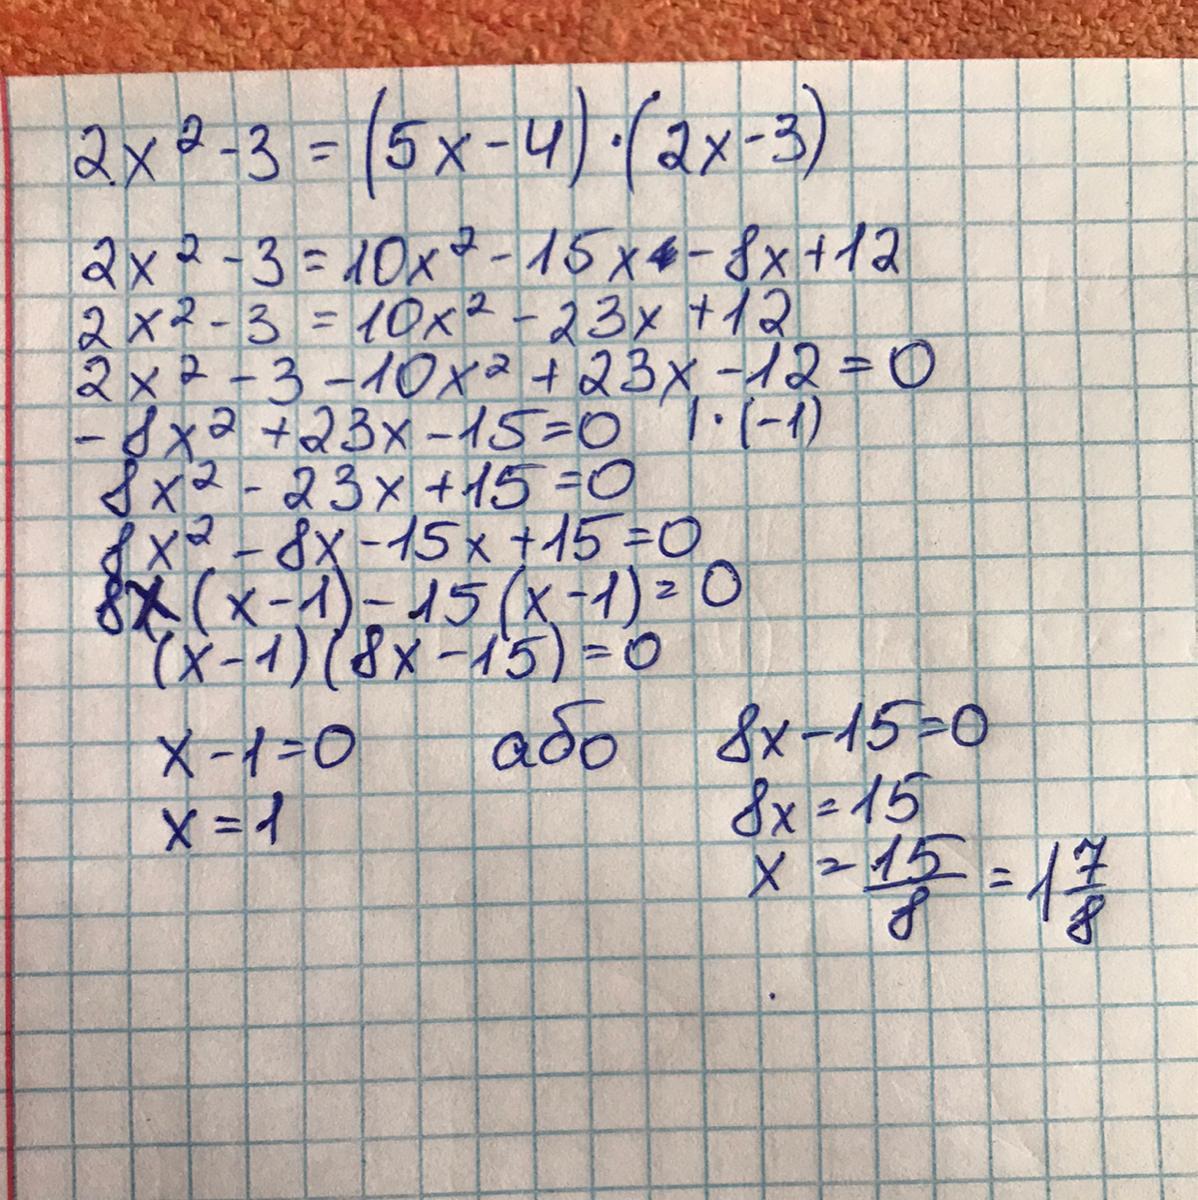 2x² - 3 = (5x - 4) · (2x - 3)
2x² - 3 = 10x² - 15x - 8x + 12
2x² - 3 = 10x² - 23x + 12
2x² - 3 - 10x² + 23x - 12 = 0
- 8x² + 23x - 15 = 0 | · (-1)
8x² - 23x + 15 = 0
8x² - 8x - 15x + 15 = 0
8x (x - 1) - 15 (x - 1) = 0
(x - 1) (8x - 15) = 0
x - 1 = 0 або 8x - 15 = 0
x = 1 8x = 15
x = 15/8 = 1 7/8